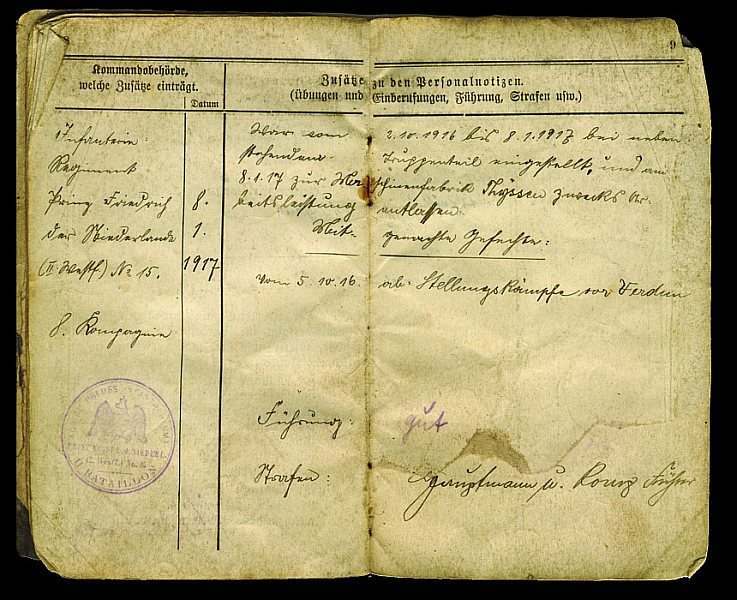 9
Kommandobehörde,
welche Zusätze einträgt.
Datum
Zusätze zu den Personalnotizen.
(Übungen und Einberufungen, Führung, Strafen usw.)
Infanterie-
Regiment
Prinz Friedrich
der Niederlande
(II. Westf.) No 15.
8. Kompagnie
8.
1.
1917
War vom 2.10.1916 bis 8.1.1917 bei neben
stehendem Truppenteil eingestellt, und am
8.1.17 zur Maschinenfabrik Thyssen zwecks Ar-
beitsleistung entlassen.
Mitgemachte Gefechte:
vom 5.10.16. ab: Stellungskämpfe vor Verdun
Führung: gut
Strafen:
Hauptmann u. Komp Führer
II. BATAILLON